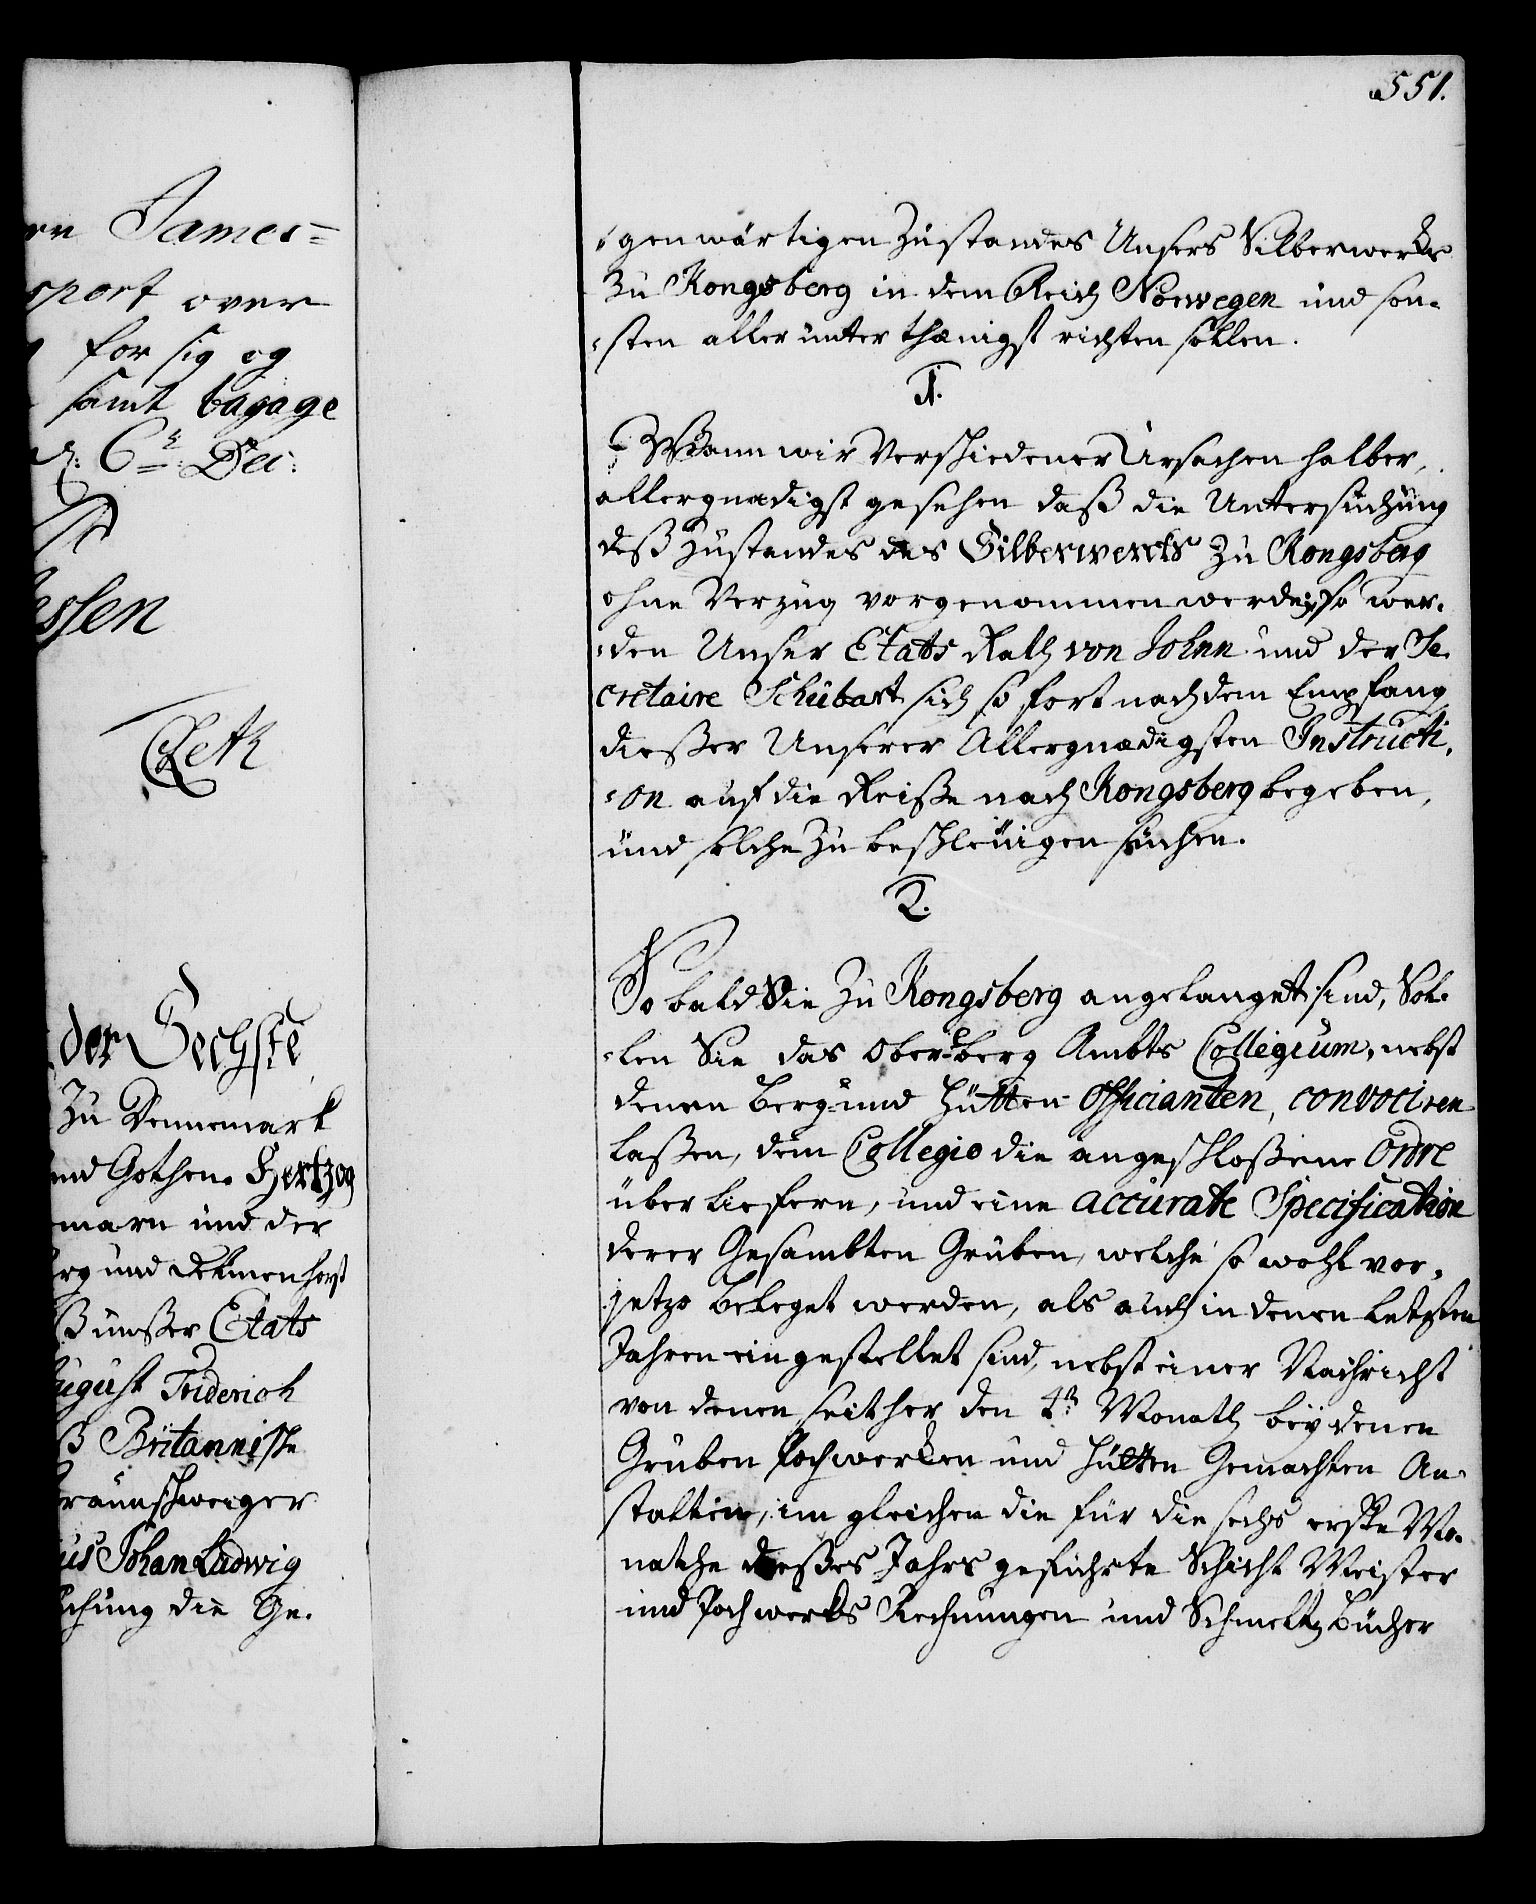 551.
rn James=
sport over
for sig og
samt bagage
d: 6te Dec:
essen
Leth
der Sechste
Zu Dennemark
und Gothen. Hertzog
marn und der
urg und Delmenhorst
ß unser Etats
August Friderich
ß Britannische
Braunschweiger
us Johan Ludwig
uchung die Ge-
genwärtigen Zustandes Unsers Silberwerks
zu Kongsberg in dem Reich Norwegen und son-
-sten allerünterthænigst richten sollen.
1.
Wann wir verschiedener Ursachen halber,
allergnædigst gesehen daß die Untersuchung
deß Zustandes des Silberwercks zu Kongsberg
ohne Verzug vorgenommen werde, so wer-
-den Unser Etats Rath von Johnn und der Se-
cretaire Schubart sich so fort nach dem Empfang
dieser Unserer Allergnædigsten Instructi-
-on auf die Reiße nach Kongsberg begeben,
und solche zu beschleunigen suchen.
2.
So bald Sie zu Kongsberg angelanget sind, Sol-
-len Sie das Ober-berg Ambts Collegium, nebst
denen Berg- und Hütten Officianten, convociren
laßen, dem Collegio die angeschloßene Ordre
über liefern, und eine accurate Specification
derer Gesambten Gruben, welche so wohl vor-
jetzo beleget werden, als auch in denen letzten
Jahren eingestellet sind, nebst einer Nachricht
von denen seither den 4tn Monath beÿ denen
Gruben Pochwerken und Hütten Gemachten An-
stalten, im gleichen die für die sechs erste Mo-
nathe dießes Jahrs geführte Schicht Meister
und Pochwerks Rechnungen und Schmeltz Bücher